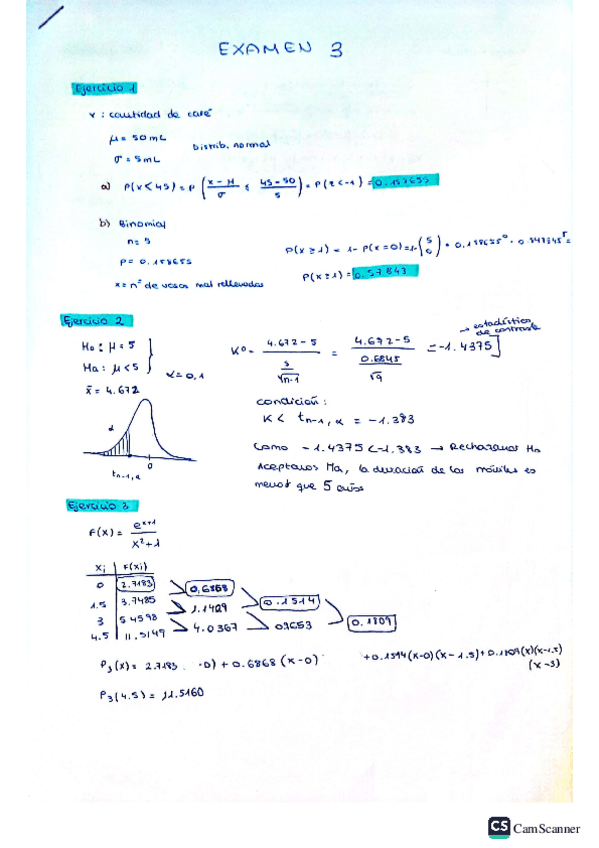 EXAMEN 3
Ejercicio 1
x : cantidad de café
μ = 50 mL
σ = 5 mL
Distrib. normal
a) P(x < 45) = P ( x - μ / σ < 45 - 50 / 5 ) = P(z < -1) =
b) Binomial
n = 5
P = 0.158655
x = nº de vasos mal rellenados
P(x ≥ 1) = 1 - P(x = 0) = 1 - (5 0)
P(x ≥ 1) = 0.57843
Ejercicio 2
Ha : μ < 5
α = 0,1
x̄ = 4.672
K⁰ = 4.672 - 5 / s / √n-1 = 4.672 - 5 / 0.6845 / √9 = -1.4375
→ estadístico de contraste
condición :
K < t n-1, α = -1.383
α
t n-1, α
0
Como -1.4375 < -1.383 → Rechazamos Ho
Aceptamos Ha, la duración de los móviles es
menor que 5 años
Ejercicio 3
F(x) = e^x+1 / x² + 1
xi F(xi)
0 2.7183 0,6868
1.5 3.7485 1.1409 0.1514
3 5.4598 4.0367 0.1809
4.5 11.5149
P3(x) = 2.7183 + 0.6868 (x-0) (x-0)(x-1.5) + 0.1809 (x)(x-1.5)
(x-3)
P3(4.5) = 11.5160
CS CamScanner